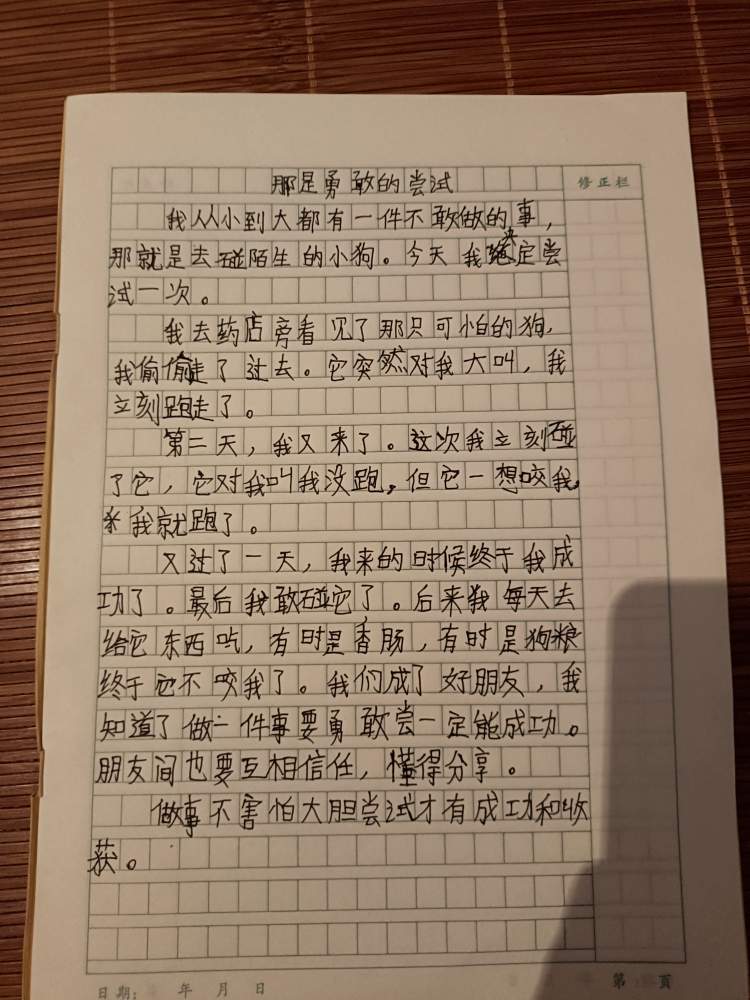 那是勇敢的尝试
修正栏
我从小到大都有一件不敢做的事，
那就是去碰陌生的小狗。今天我决定尝
试一次。
我去药店旁看见了那只可怕的狗，
我偷偷走了过去。它突然对我大叫，我
立刻跑走了。
第二天，我又来了。这次我立刻碰
了它，它对我叫我没跑，但它一想咬我，
我就跑了。
又过了一天，我来的时候终于我成
功了。最后我敢碰它了。后来我每天去
给它东西吃，有时是香肠，有时是狗粮
终于它不咬我了。我们成了好朋友，我
知道了做一件事要勇敢尝一定能成功。
朋友间也要互相信任，懂得分享。
做事不害怕大胆尝试才有成功和收
获。
日期： 年 月 日
第 頁